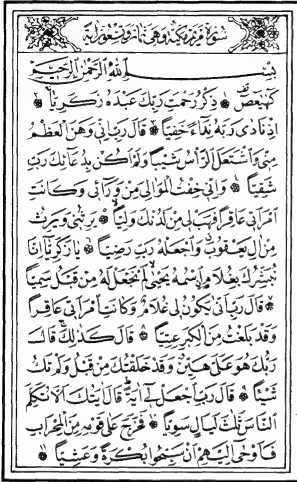 سورة مريم مكية وهي ثمان وتسعون آية
بسم الله الرحمن الرحيم
كهيعص ذكر رحمت ربك عبده زكريا
اذ نادى ربه نداء خفيا قال رب اني وهن العظم
مني واشتعل الرأس شيبا ولم اكن بدعائك رب
شقيا واني خفت الموالي من ورائي وكانت
امرأتي عاقرا فهب لي من لدنك وليا يرثني ويرث
من آل يعقوب واجعله رب رضيا يا زكريا انا
نبشرك بغلام اسمه يحيى لم نجعل له من قبل سميا
قال رب انى يكون لي غلام وكانت امرأتي عاقرا
وقد بلغت من الكبر عتيا قال كذلك قال
ربك هو علي هين وقد خلقتك من قبل ولم تك
شيئا قال رب اجعل لي آية قال آيتك الا تكلم
الناس ثلث ليال سويا فخرج على قومه من المحراب
فاوحى اليهم ان سبحوا بكرة وعشيا